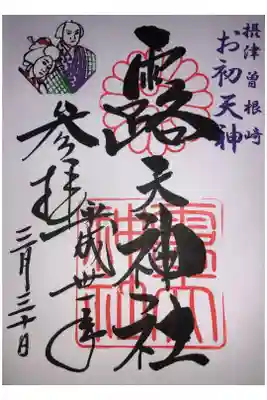 摂津曽根崎
お初天神
露天神社
参拝
平成三十一年
三月三十日
露天神社